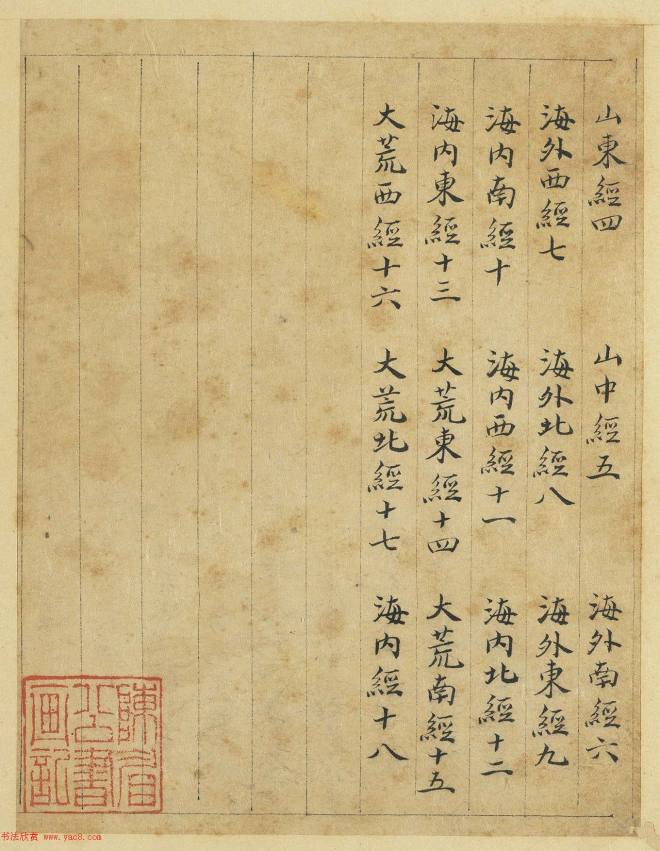 山東經四 山中經五 海外南經六
海外西經七 海外北經八 海外東經九
海内南經十 海内西經十一 海内北經十二
海内東經十三 大荒東經十四 大荒南經十五
大荒西經十六 大荒北經十七 海内經十八
陳眉
公書
画記
书法欣赏 www.yac8.com